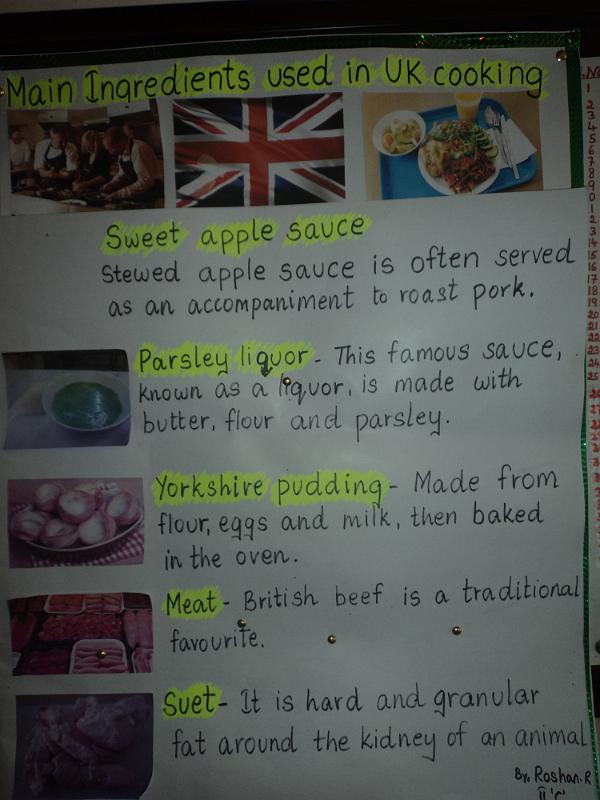 Main Ingredients used in UK cooking
Sweet apple sauce
Stewed apple sauce is often served
as an accompaniment to roast pork.
Parsley liquor - This famous sauce,
known as a liquor, is made with
butter, flour and parsley.
Yorkshire pudding - Made from
flour, eggs and milk, then baked
in the oven.
Meat - British beef is a traditional
favourite.
Suet - It is hard and granular
fat around the kidney of an animal
By, Roshan.R